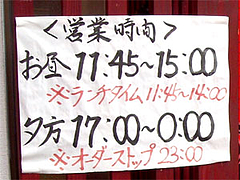 ＜営業時間＞
お昼 11:45～15:00
※ランチタイム 11:45～14:00
夕方 17:00～0:00
※オーダーストップ 23:00